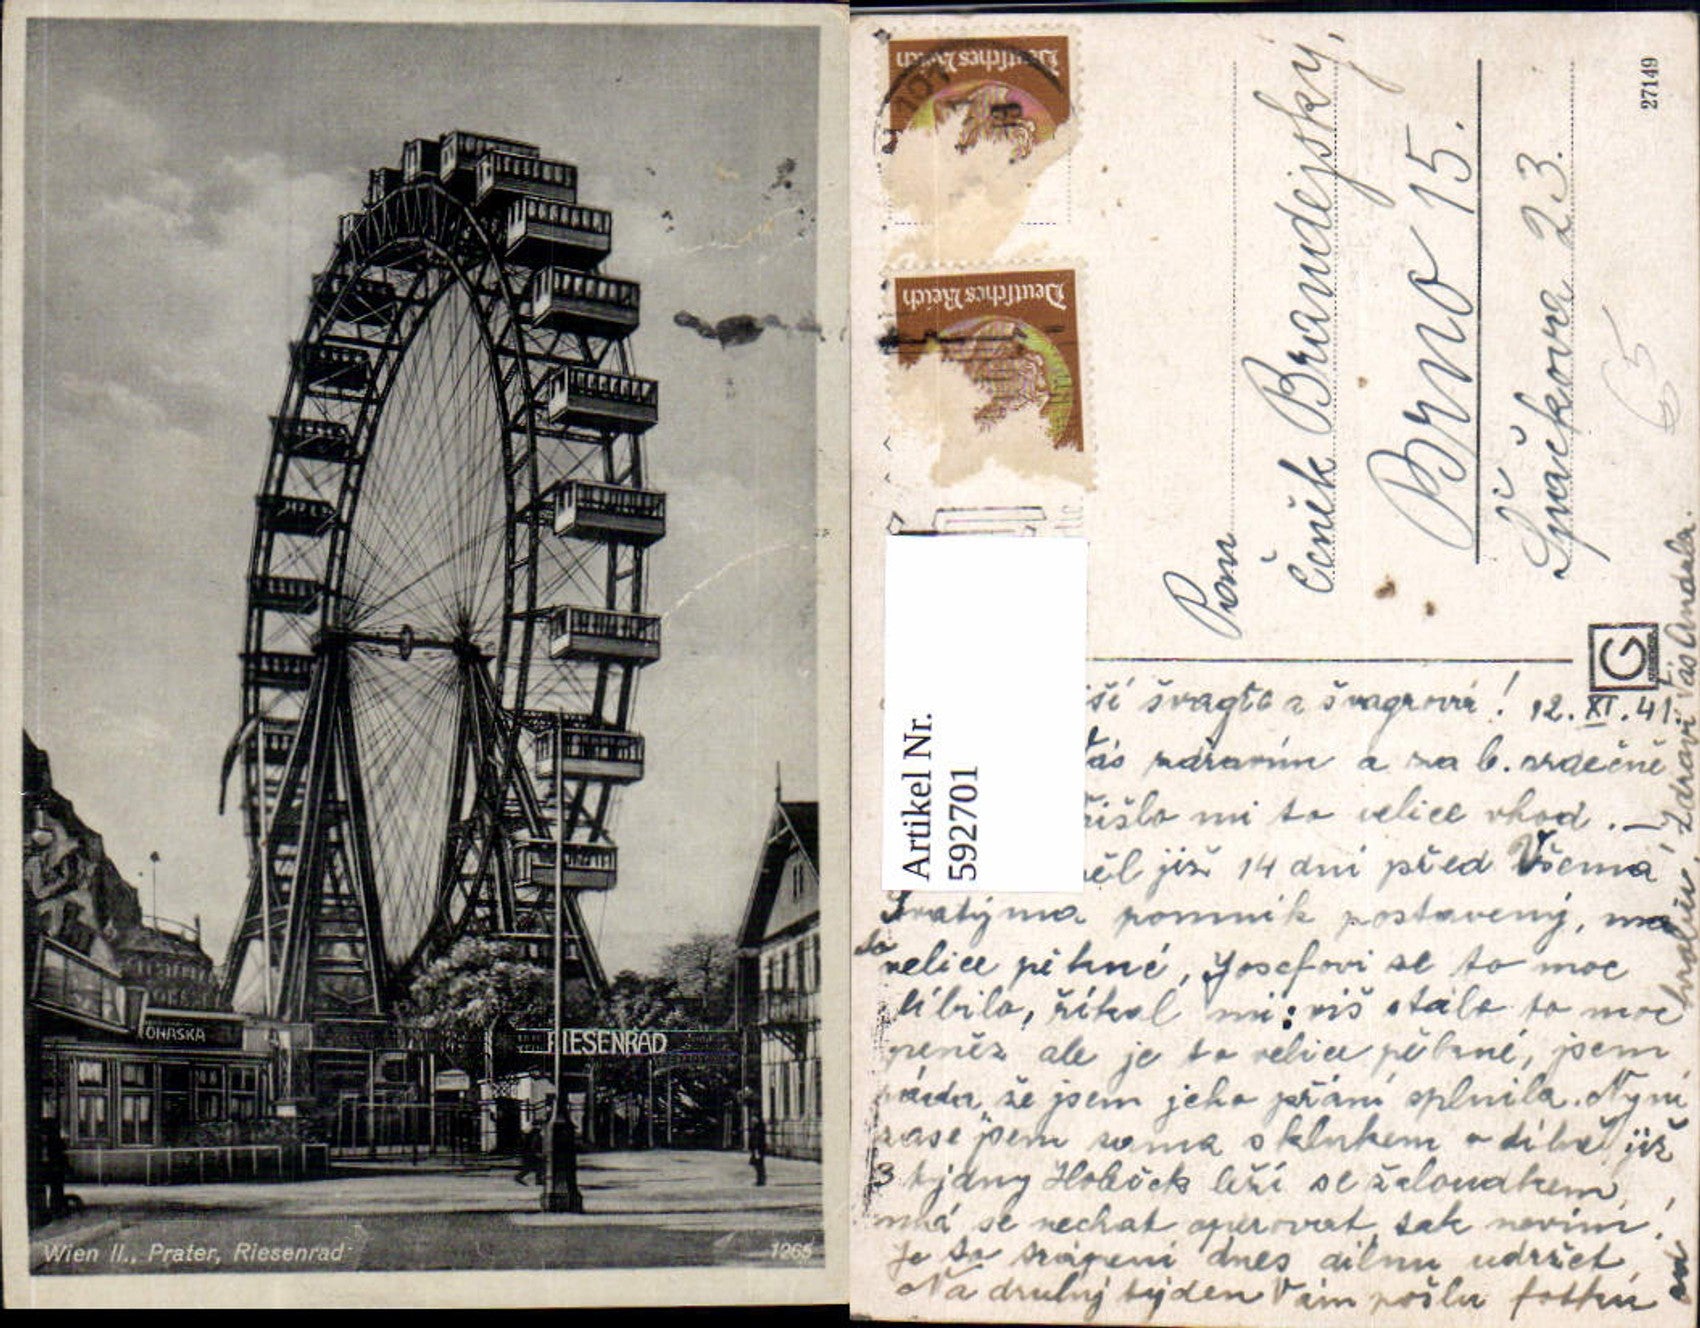 ONASKA
RIESENRAD
Wien II., Prater, Riesenrad
1265
Deutsches Reich
Deutsches Reich
Artikel Nr.
592701
27149
Pan
Čeněk Brandejský,
Brno 15.
Špačkova 23.
65
G
ší švagře a švagrová! 12. XI. 41.
Vás zdravím a za b. srdečně
přišlo mi to velice vhod. —
měl již 14 dní před Všema
Svatýma pomník postavený,
velice pěkné, Josefovi se to moc
líbilo, říkal mi: viš stálo to moc
peněz ale je to velice pěkné, jsem
ráda že jsem jeho přání splnila. Nyní
zase jsem sama s klukem již
3 týdny Holeček leží se žaloudkem,
má se nechat operovat, tak nevím!
Je to trápení dnes dílnu udržet.
Na druhý týden Vám pošlu fotku
zdraví Vás